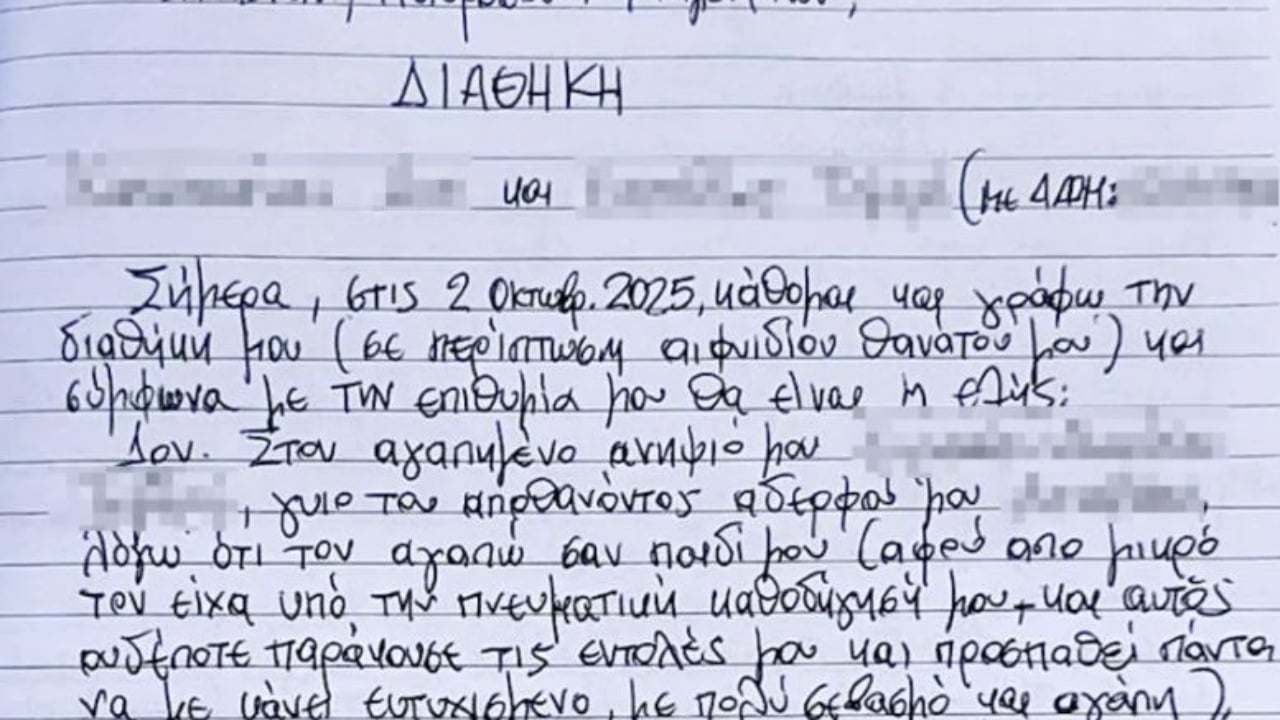 ΔΙΑΘΗΚΗ
και (με ΔΑΦΗ:
Σήμερα, στις 2 Οκτωβρ. 2025, κάθομαι και γράφω την
διαθήκη μου (σε περίπτωση αιφνιδίου θανάτου μου) και
σύμφωνα με την επιθυμία μου θα είναι η εξής:
1ον. Στον αγαπημένο ανηψιό μου
, γυιο του αποθανόντος αδερφού μου ,
λόγω ότι τον αγαπώ σαν παιδί μου (αφού απο μικρό
τον είχα υπό την πνευματική καθοδήγησή μου, και αυτός
ουδέποτε παράκουσε τις εντολές μου και προσπαθεί πάντα
να με κάνει ευτυχισμένο, με πολύ σεβασμό και αγάπη),